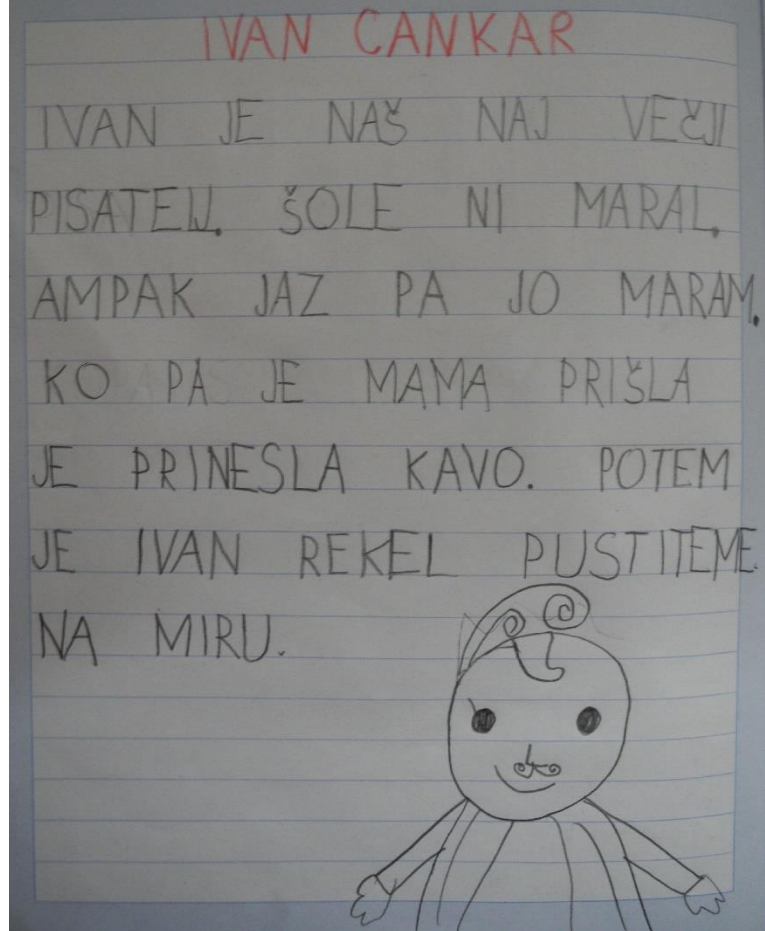 IVAN CANKAR
IVAN JE NAŠ NAJ VEČJI
PISATELJ. ŠOLE NI MARAL.
AMPAK JAZ PA JO MARAM.
KO PA JE MAMA PRIŠLA
JE PRINESLA KAVO. POTEM
JE IVAN REKEL PUSTITEME
NA MIRU.